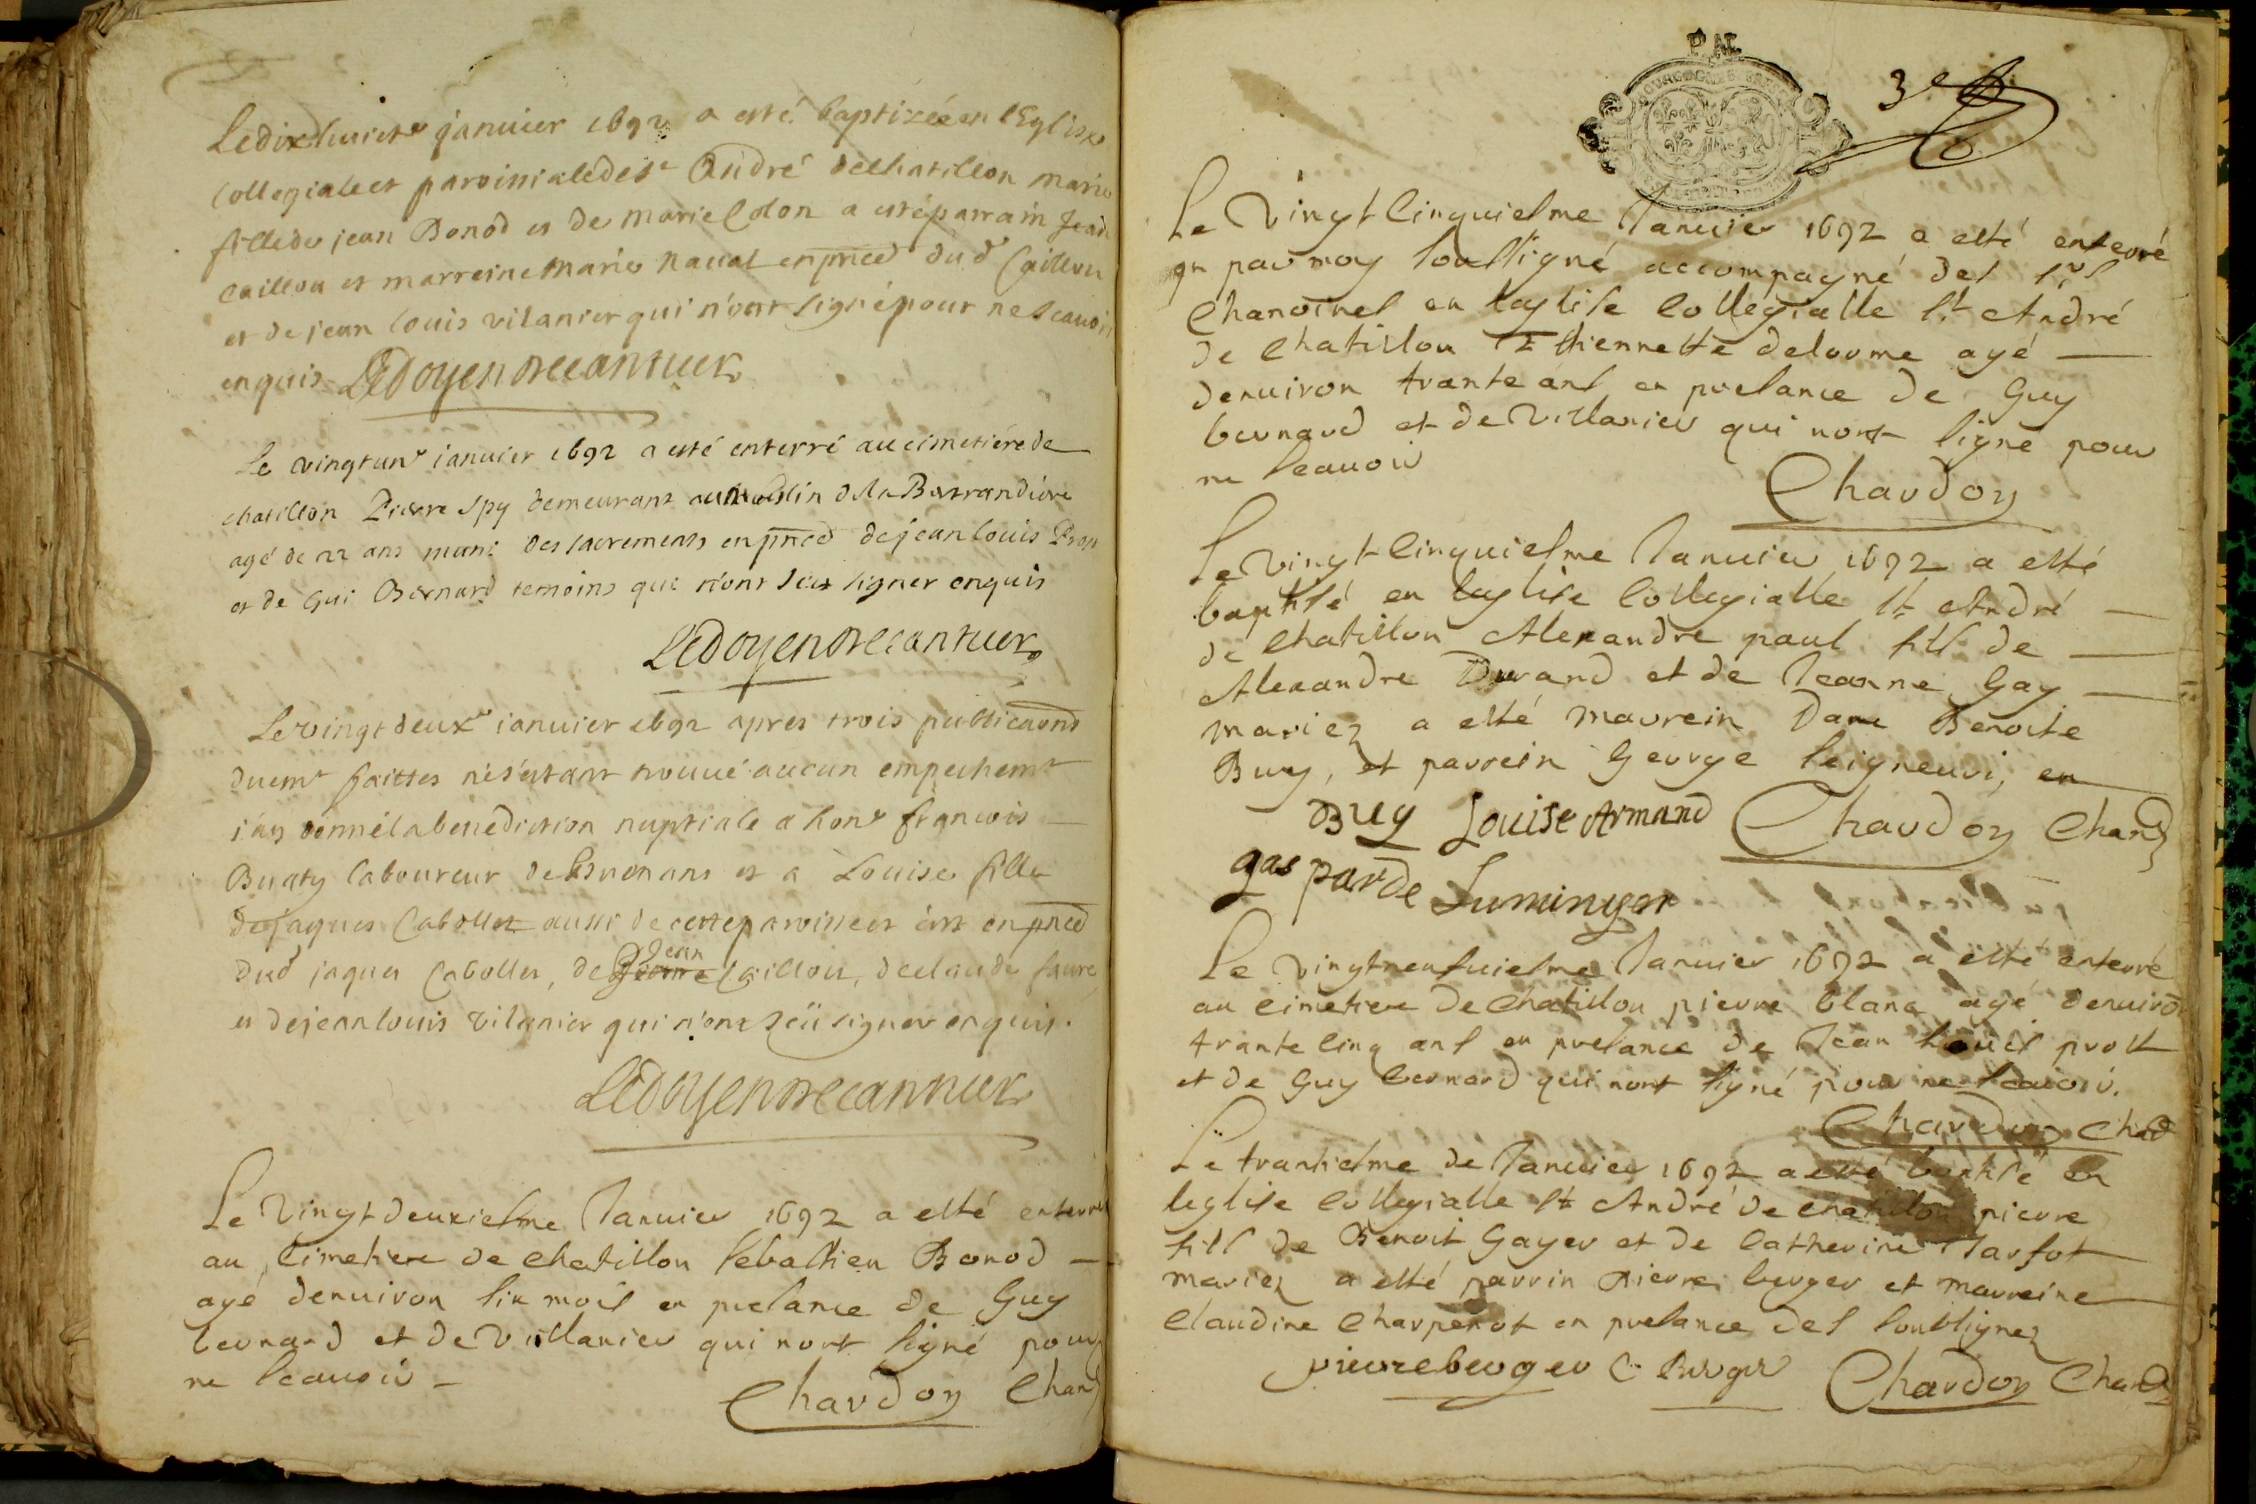 Le dix huict.e januier 1692 a esté baptizée en l'Eglise
collegiale et paroissiale de S.t André de Chatillon marie
fille de jean Bonod et de marie Colon a esté parrain Jean
caillou et marreine marie nauat en pnced dud Caillou
et de jean louis vilanier qui n'ont signé pour ne scauoir
enquis Ledoyen Decantuer
Le vingtun.e januier 1692 a esté enterré au cimetiére de
chatillon Pierre Spy demeurant au molin de la Bertrandiere
agé de 22 ans muni des sacrements en pnced de jean louis Prost
et de Gui Bernard temoins qui n'ont sceu signer enquis
Ledoyen Decantuer
Le vingt deux.e januier 1692 apres trois publicaons
duem.t faittes ne s'estant trouué aucun empechem.t
j'ay donné la benediction nuptiale a hon.e francois
Buaty laboureur de et a Louise fille
de jaques Cabollet aussi de cette paroisse et ce en pnced
dud jaques Cabollet, de Pierre Jean Caillou, de claude faure
et de jean louis vilanier qui n'ont sçeü signer enquis.
Ledoyen Decantuer
Le Vingt deuxiesme Januier 1692 a esté enterré
au Cimetiere de Chatillon sebastien Bonod
agé denuiron six mois en presance de Guy
bernard et de Villanier qui nont signé pour
ne scauoir
Chardon Chan
PAL
3e
Le Vingt cinquiesme Januier 1692 a esté enterré
par moy soussigné accompagné des s.rs
Chanoines en leglise collégialle s.t André
de Chatillon Ethiennette delorme agé
denuiron trante ans en presance de Guy
bernard et de Villanier qui nont signé pour
ne scauoir
Chardon
Le vingt cinquiesme Januier 1692 a esté
baptisé en leglise collegialle s.t André
de Chatillon Alexandre paul fils de
Alexandre Durand et de Jeanne Gay
mariez a esté marrein Dame Benoite
Buy, et parrein George seigneuri, en
Buy Louise Armand Chardon Chan
gasparde Luminyer
Le vingtneufuiesme Januier 1692 a esté enterré
au cimetiere de chatillon pierre blanc agé denuiron
trante cinq ans en presance de Jean louis prost
et de Guy bernard qui nont signé pour ne scauoir.
Chardon Chan
Le trantiesme de Januier 1692 a esté baptisé en
leglise collegialle s.t André de chatillon pierre
fils de Benoit Gayer et de Catherine
mariez a esté parrin pierre berger et marreine
Claudine Charpenot en presance des soubsignez
pierre berger C Berger Chardon Chan